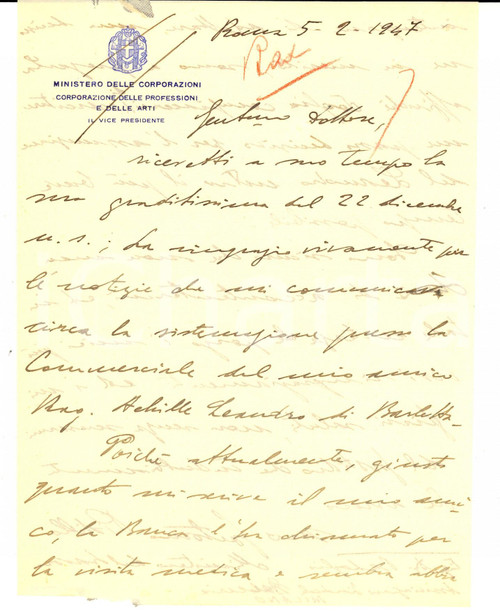 Roma 5-2-1947
Rax
MINISTERO DELLE CORPORAZIONI
CORPORAZIONE DELLE PROFESSIONI
E DELLE ARTI
IL VICE PRESIDENTE
Gent.mo Dottore,
ricevetti a suo tempo la
sua graditissima del 22 dicembre
u. s.; La ringrazio vivamente per
le notizie che mi comunica
circa la sistemazione presso la
Commerciale del mio amico
Rag. Achille Leandro di Barletta.
Poichè attualmente, giusto
quanto mi scrive il mio ami-
co, la Banca l'ha chiamato per
la visita medica e sembra abbia